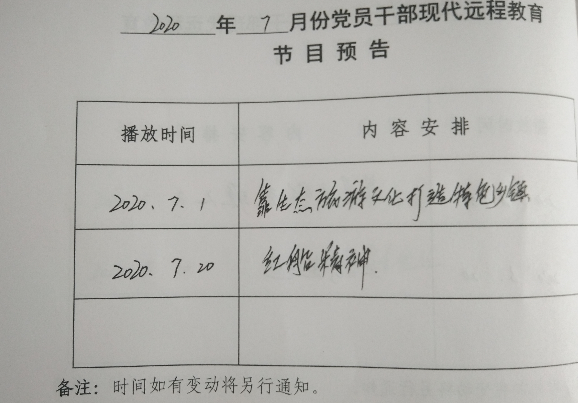 2020 年 7 月份党员干部现代远程教育
节目预告
播放时间 内容安排
2020、7、1 靠生态旅游文化打造特色乡镇
2020、7、20 红船精神.
备注：时间如有变动将另行通知。